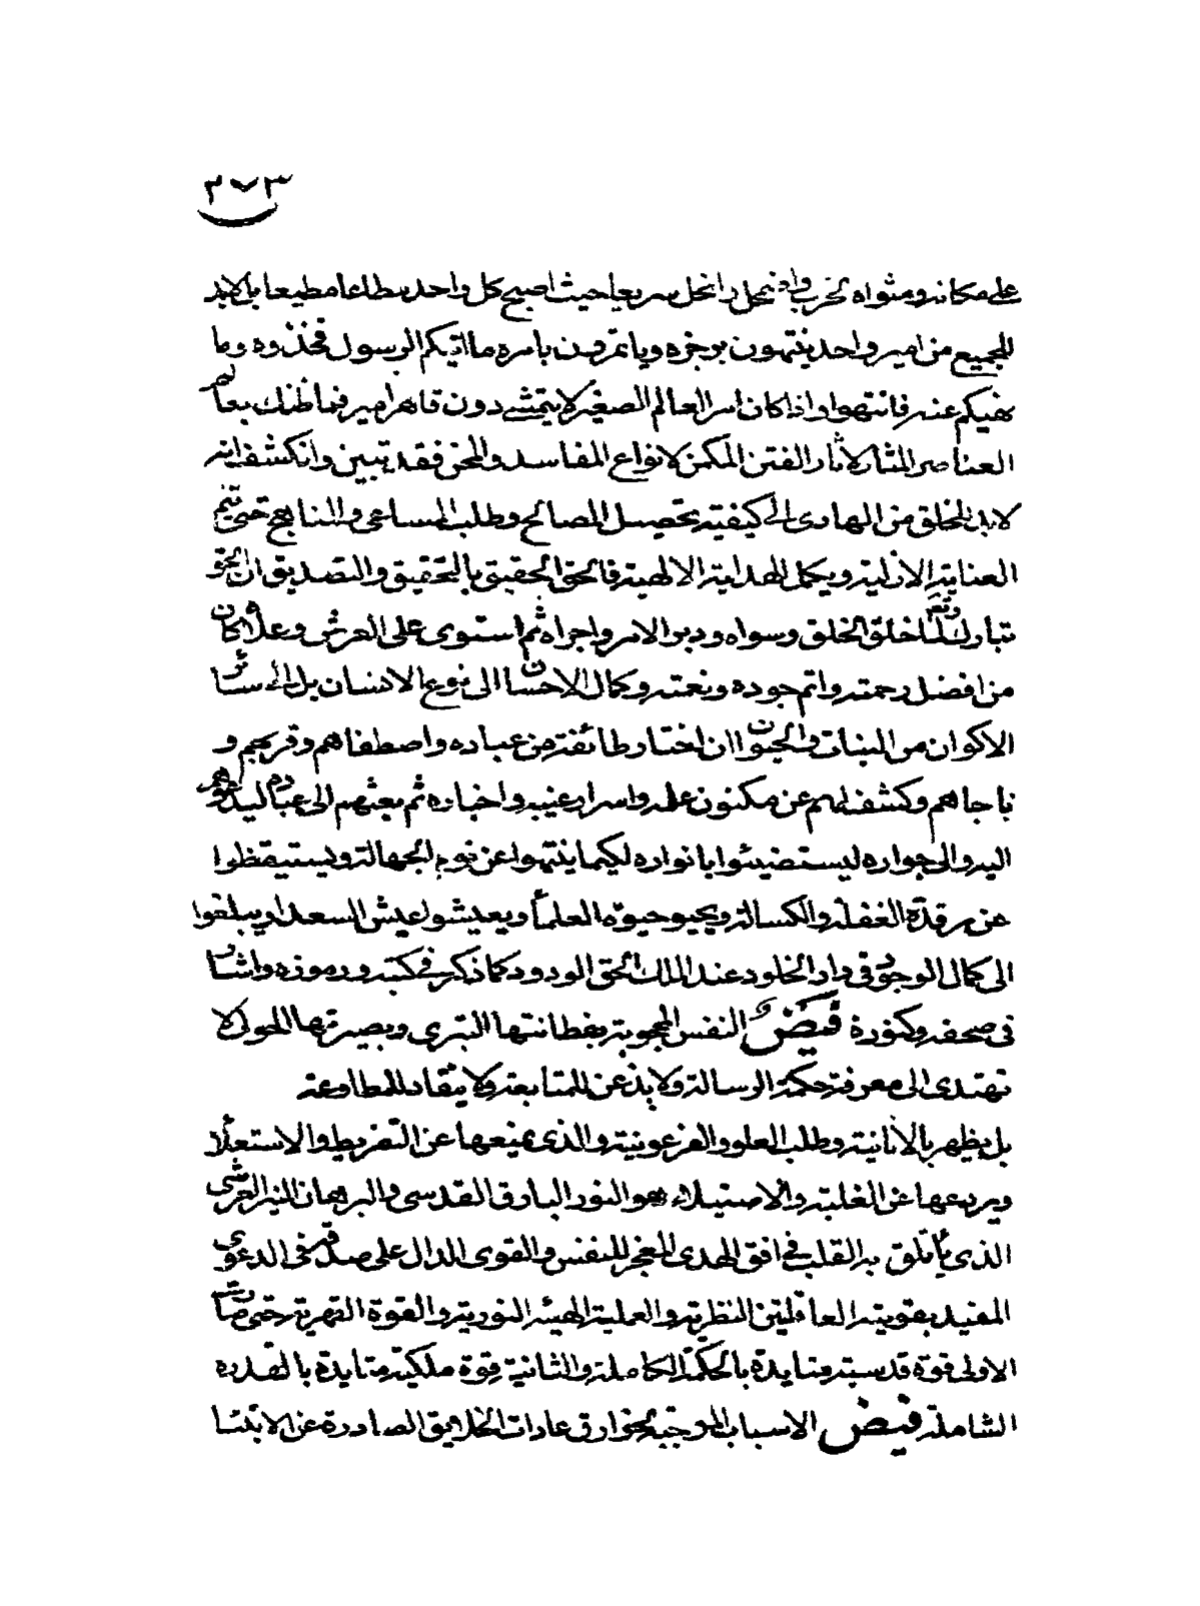 ٢٧٣
على مكانه ومثواه لخرب واضمحل وانحل سريعا حيث اصبح كل واحد مطاعا مطيعا بل لابد
للجميع من امير واحد ينتهون بزجره وياتمرون بامره ما اتيكم الرسول فخذوه وما
نهيكم عنه فانتهوا واذا كان امر العالم الصغير لا يتمشى دون قاهر امير فما ظنك بعالم
العناصر المثار لاثار الفتن المكمن لانواع المفاسد والمحن فقد تبين وانكشف انه
لابد للخلق من الهادى الى كيفية تحصيل المصالح وطلب المساعى والمناهج حتى يتم
العناية الازلية ويكمل الهداية الالهية فالحق الحقيق بالتحقيق والتصديق ان الحق
تبارك وتعم لما خلق الخلق وسواه ودبر الامر واجراه ثم استوى على العرش وعلاه كان
من افضل رحمته واتم جوده ونعمته وكمال الاحسان الى نوع الانسان بل الى سائر
الاكوان من النبات والحيوان ان اختار طائفة من عباده واصطفاهم وقربهم و
ناجاهم وكشف لهم عن مكنون علمه واسرار غيبه واخباره ثم بعثهم الى عباده ليدعوهم
اليه والى جواره ليستضيئوا بانواره لكيما ينتهوا عن نوم الجهالة ويستيقظوا
عن مرقدة الغفلة والكسالة ويحيو حيوة العلمآ ويعيشوا عيش السعداء ويبلغوا
الى كمال الوجود فى دار الخلود عند الملك الحق الودود كما ذكر فى كتبه ورموزه واشار
فى صحفه وكنوزه فيض النفس المحجوبة بفطانتها البترى وبصيرتها الحولى لا
تهتدى الى معرفة حكمة الرسالة ولا يذعن للمتابعة ولا ينقاد للمطاوعة
بل يظهر بالانانية وطلب العلو والفرعونية والذى يمنعها عن التفريط والاستعلآ
ويردعها عن الغلبة والاستيلاء هو النور البارق القدسى والبرهان النير العرشى
الذى يأتلق به القلب فى افق الهدى المعجز للنفس والقوى الدال على صدقه فى الدعوى
المفيد بقويته العاقلتين النظرية والعملية الهيئة النورية والقوة القهرية حتى صارت
الاولى قوة قدسية متايدة بالحكمة الكاملة والثانية قوة ملكية متايدة بالقدرة
الشاملة فيض الاسباب الموجبة لخوارق عادات الخلايق الصادرة عن الانبيا